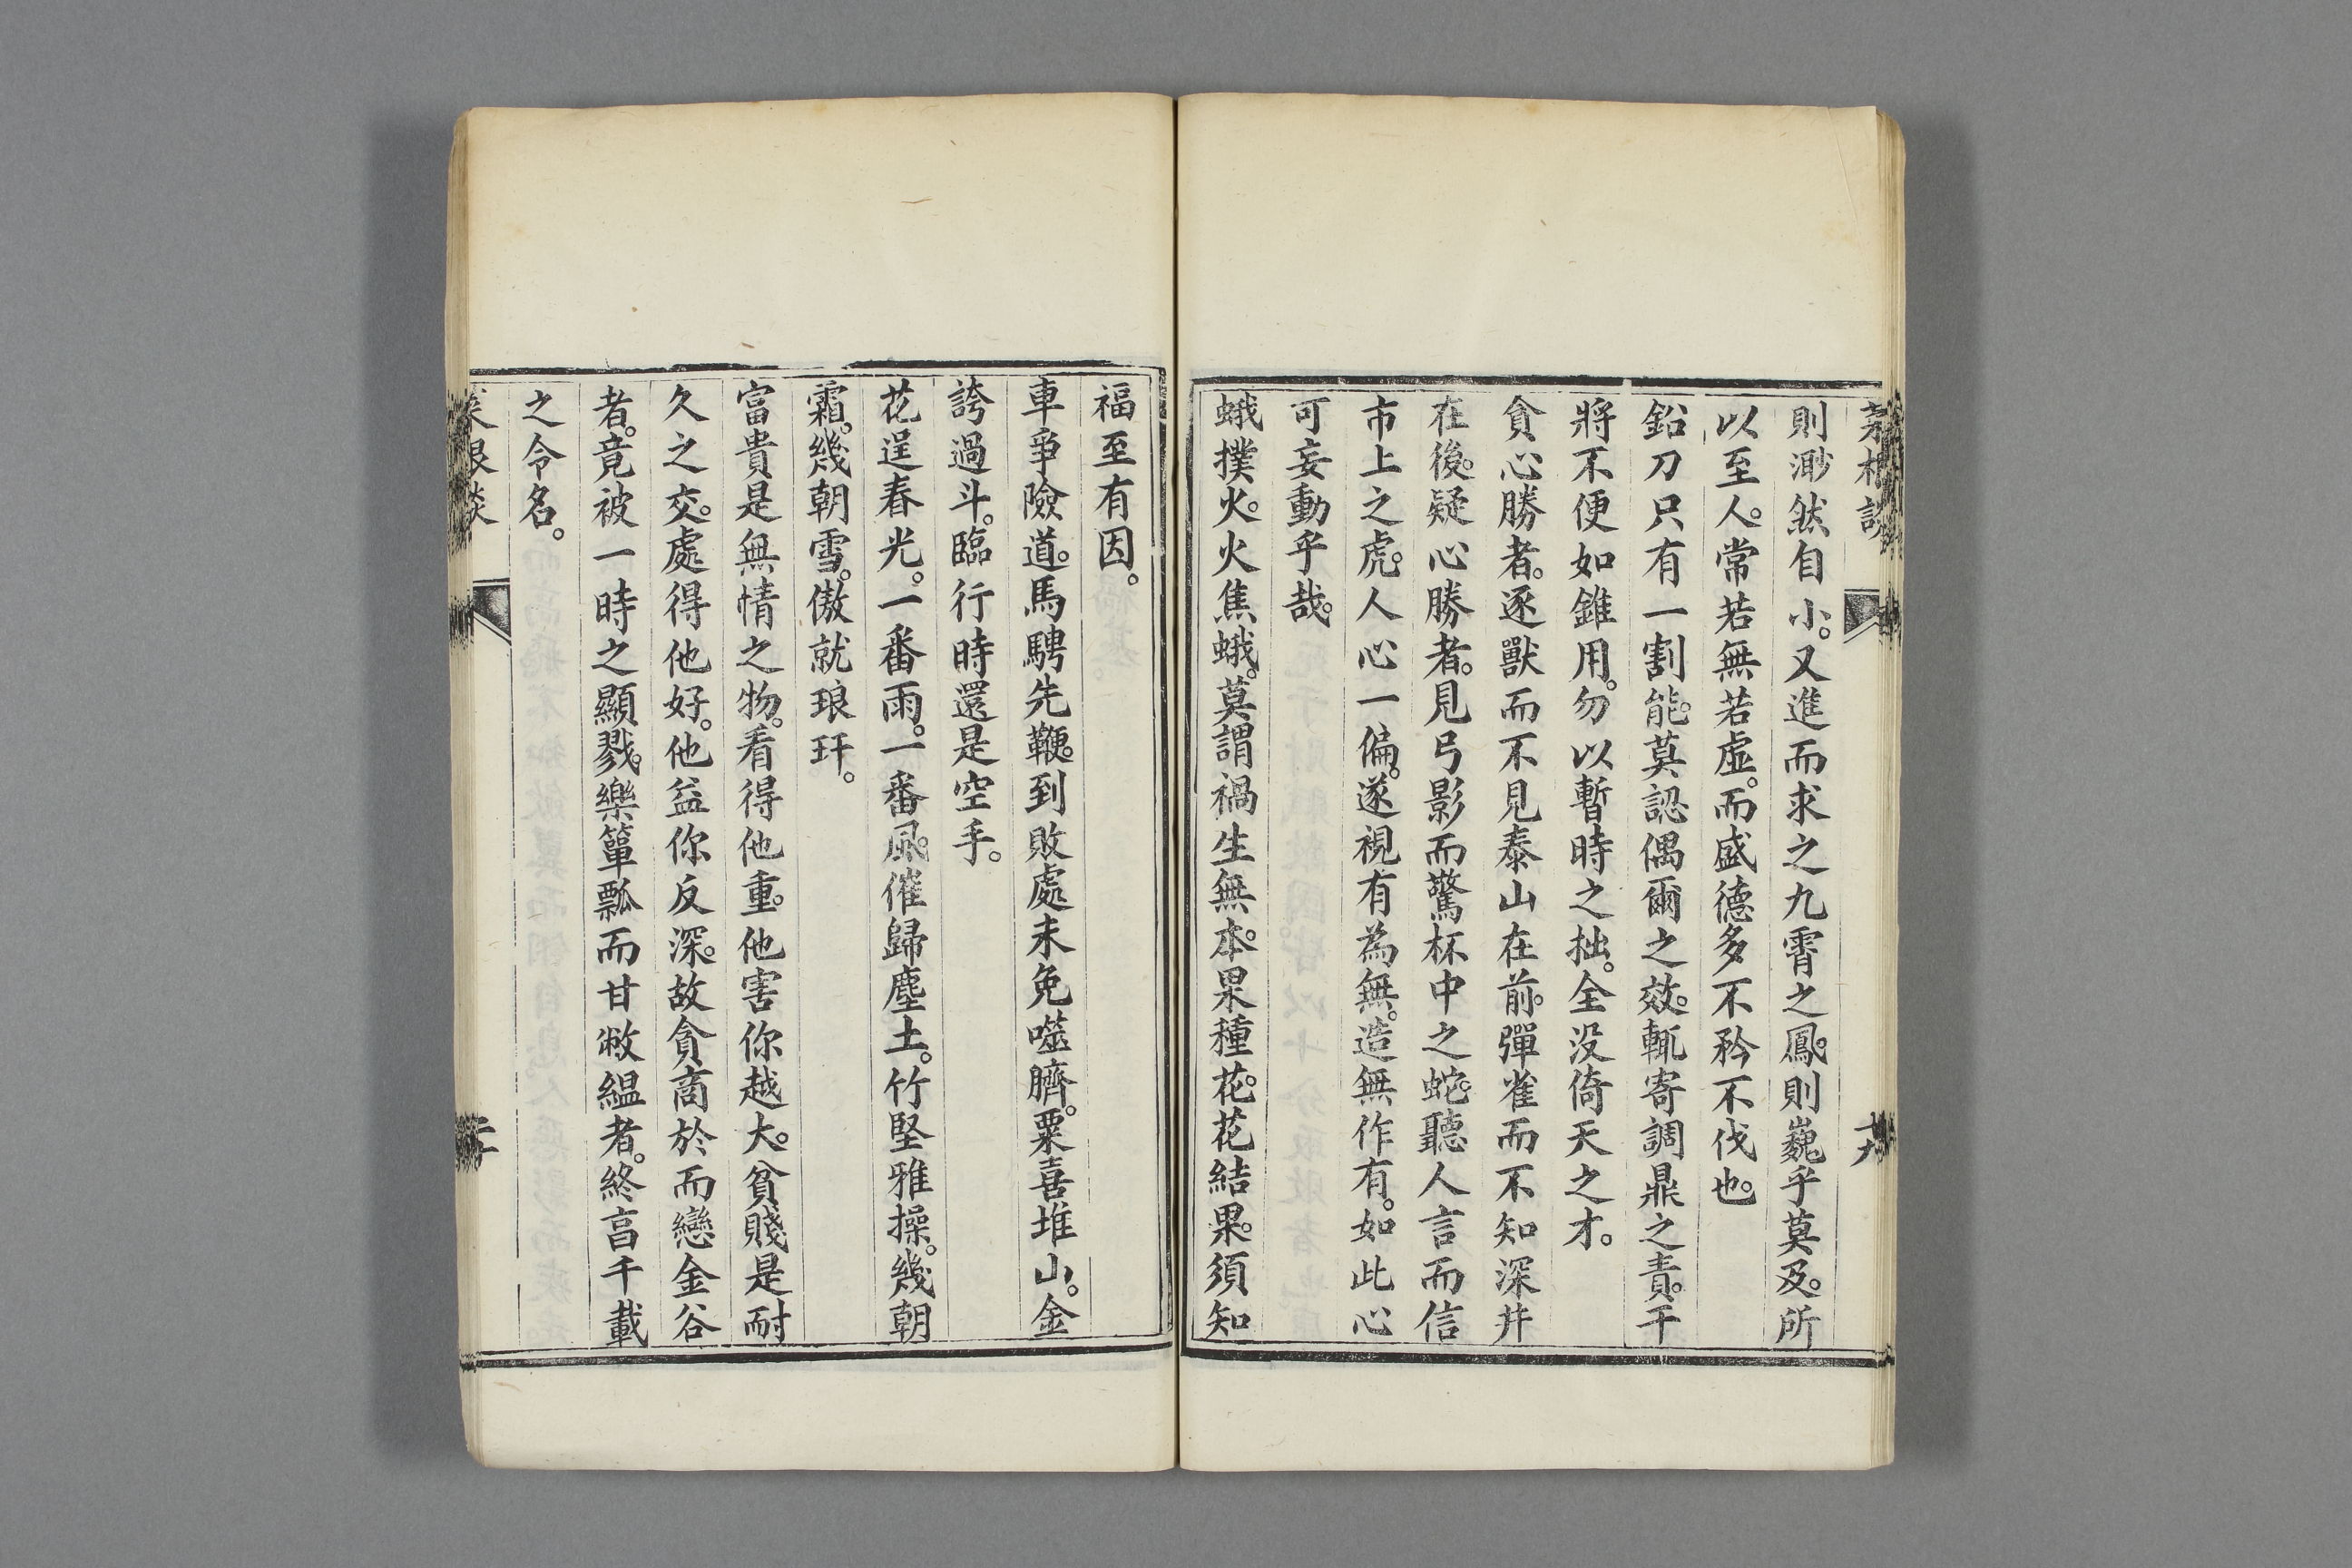 菜根談
十九
則渺然自小。又進而求之九霄之鳳。則巍乎莫及。所
以至人。常若無若虛。而盛德多不矜不伐也。
鉛刀只有一割能。莫認偶爾之效。輒寄調鼎之責。干
將不便如錐用。勿以暫時之拙。全沒倚天之才。
貪心勝者。逐獸而不見泰山在前。彈雀而不知深井
在後。疑心勝者。見弓影而驚杯中之蛇。聽人言而信
市上之虎。人心一偏。遂視有為無。造無作有。如此心
可妄動乎哉。
蛾撲火。火焦蛾。莫謂禍生無本。果種花。花結果。須知
福至有因。
車爭險道。馬騁先鞭。到敗處未免噬臍。粟喜堆山。金
誇過斗。臨行時還是空手。
花逞春光。一番雨。一番風。催歸塵土。竹堅雅操。幾朝
霜。幾朝雪。傲就琅玕。
富貴是無情之物。看得他重。他害你越大。貧賤是耐
久之交。處得他好。他益你反深。故貪商於而戀金谷
者。竟被一時之顯戮。樂簞瓢而甘敝縕者。終亯千載
之令名。
菜根談